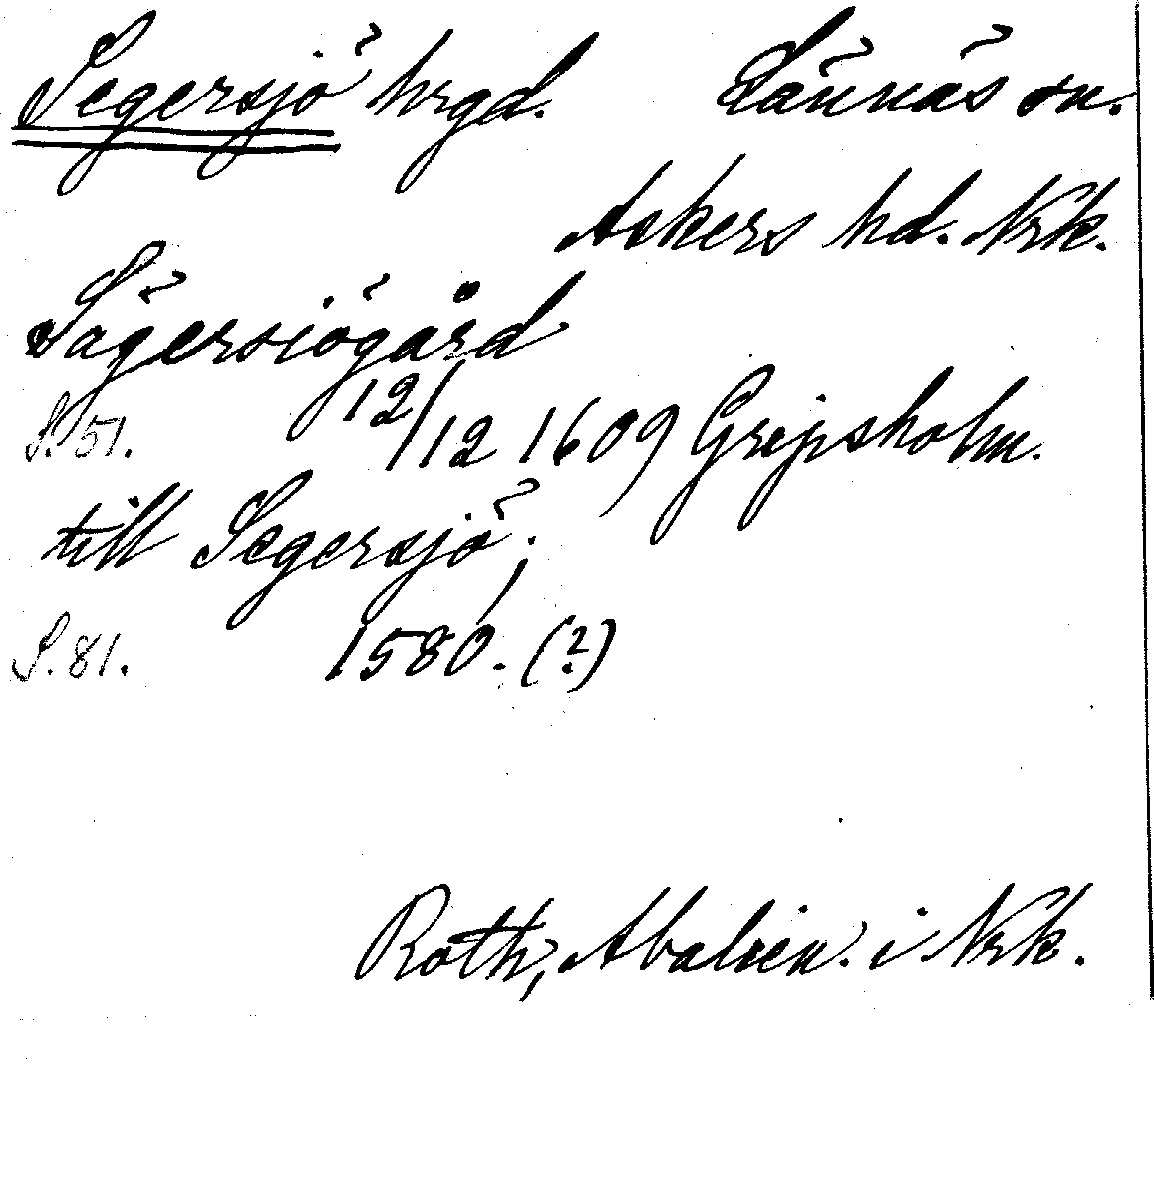 Segersjö hrgd. Lännäs sn.
Askers hd. Nrk.
Sägersiögård
S. 51. 12/12 1609 Gripsholm.
till Segersjö,
S. 81. 1580. (?)
Roth, Abalien. i Nrk.